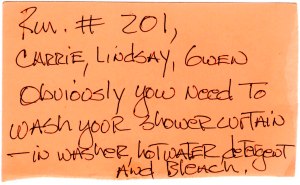 Rm. # 201,
CARRIE, LINDSAY, GWEN
Obviously you need to
wash your shower curtain
– in washer, hot water, detergent
and Bleach.